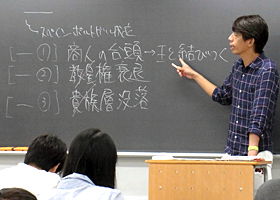 スペイン・ポルトガルの成立
[― ①] 商人の台頭→王と結びつく
[― ②] 教皇権衰退
[― ③] 貴族層没落